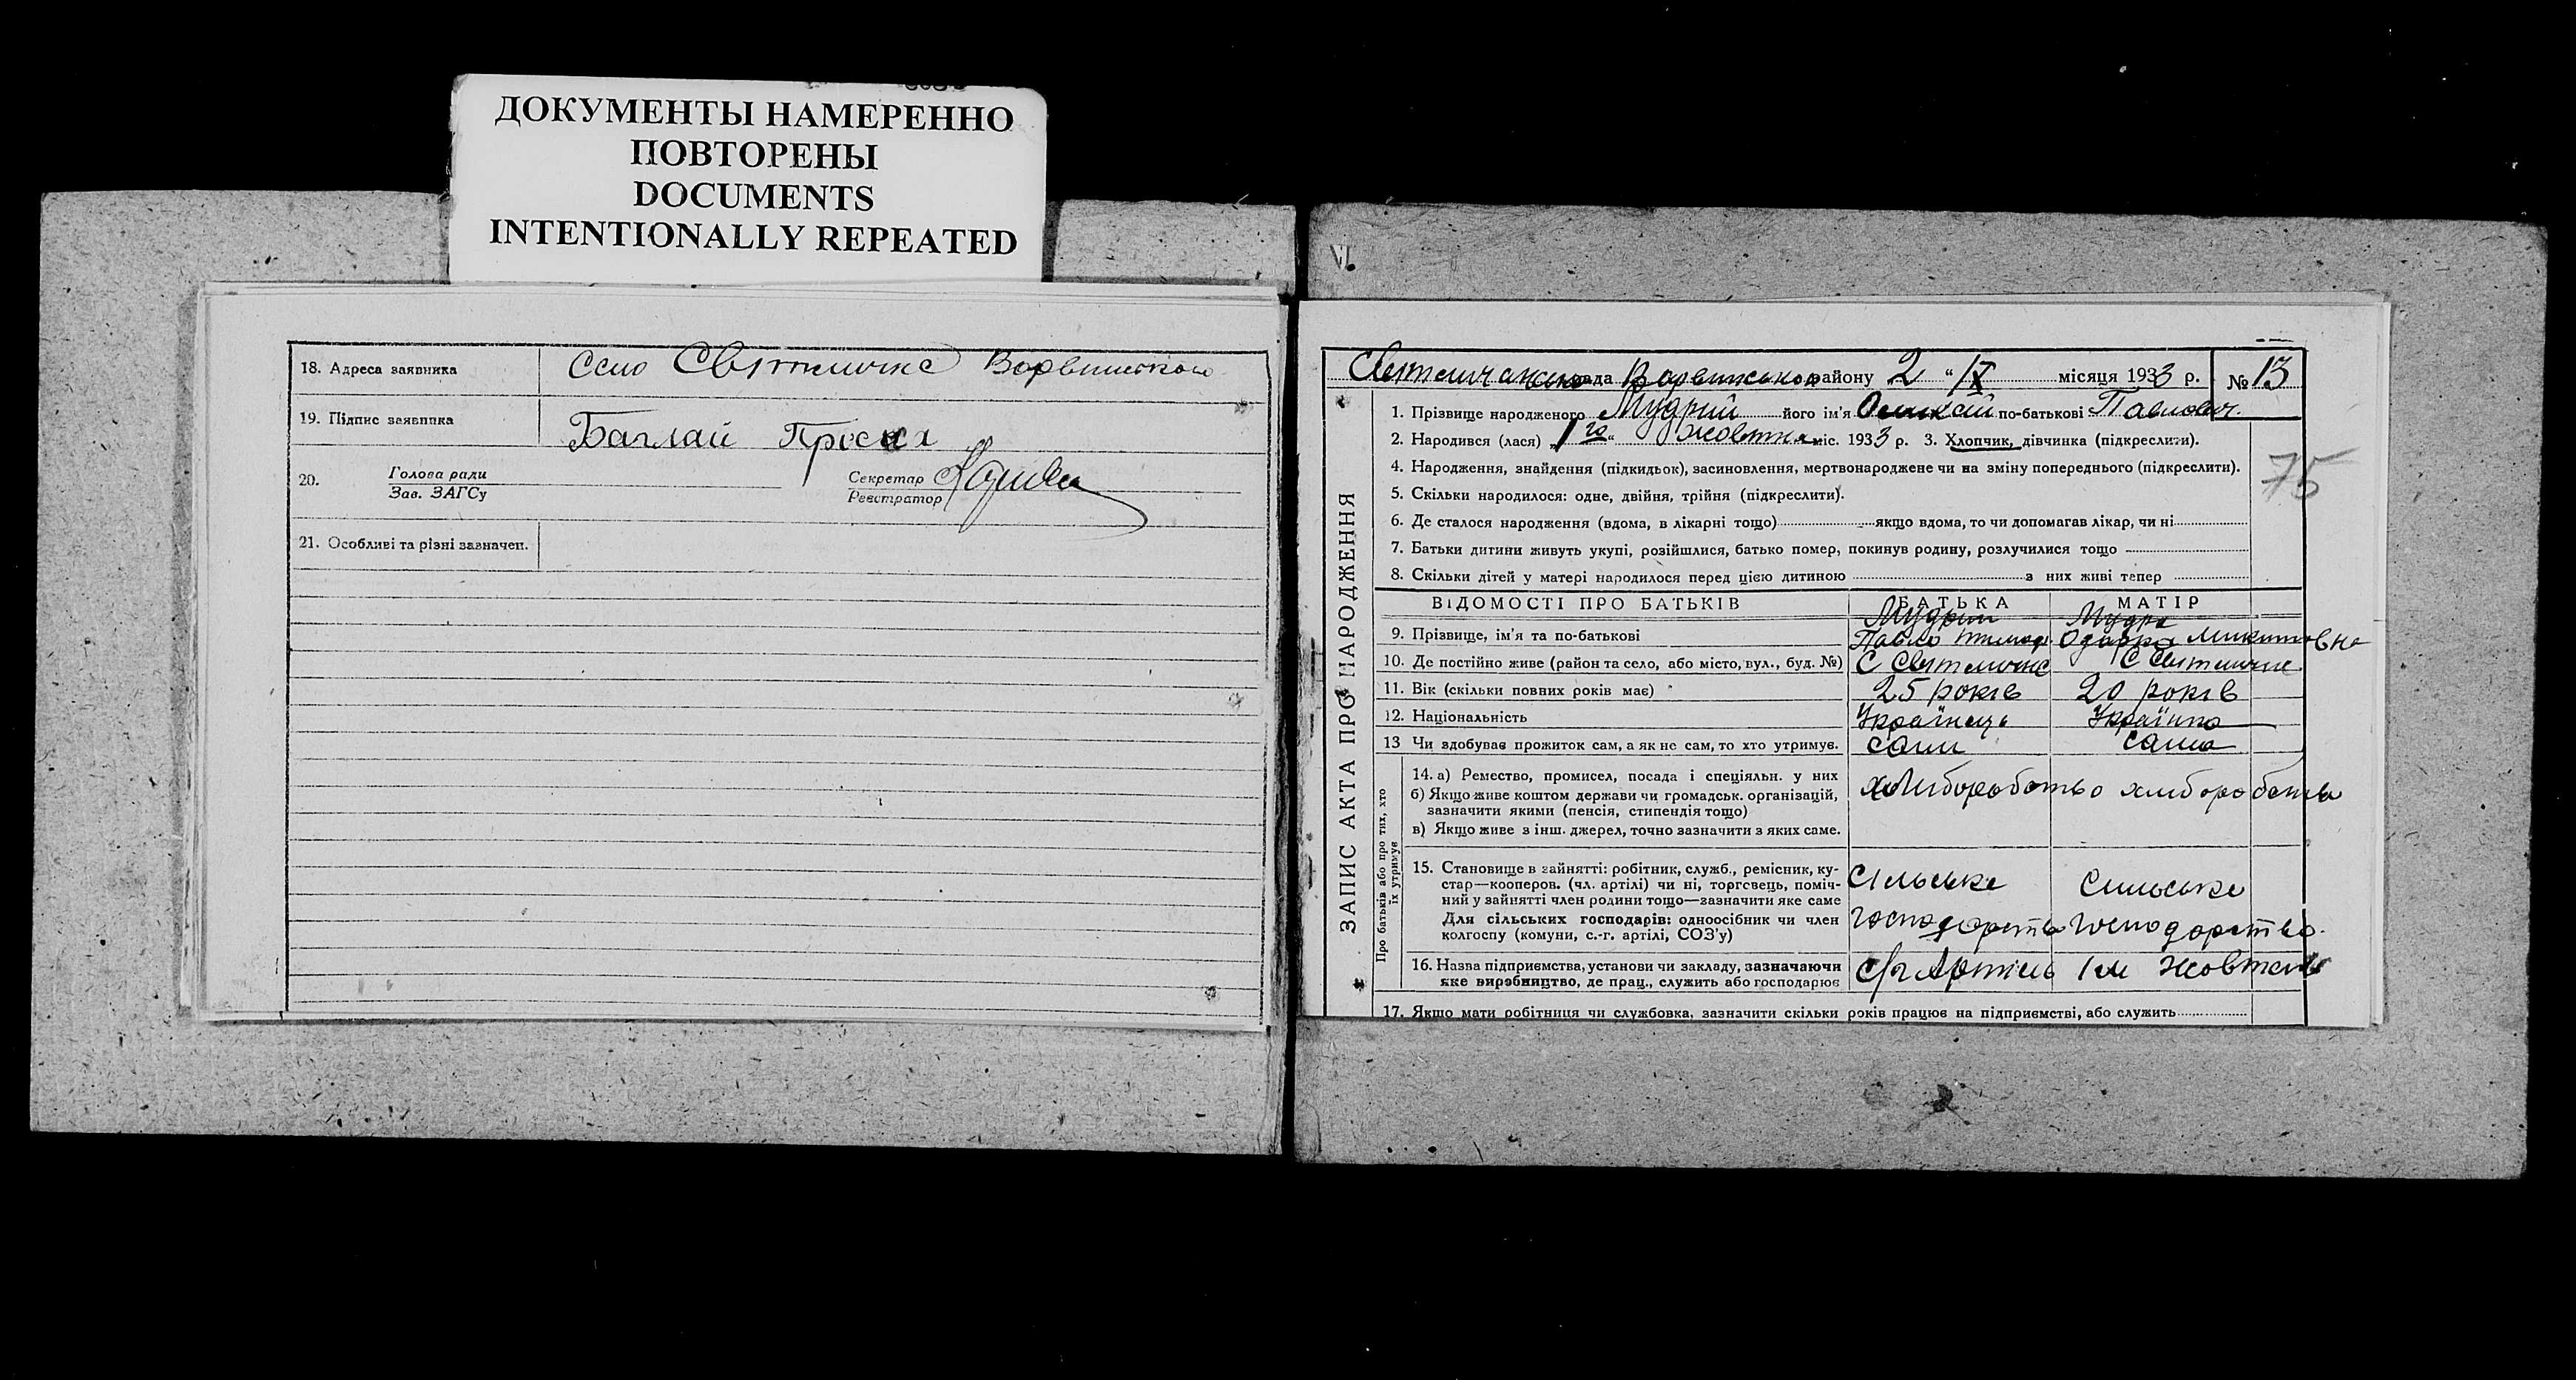 ДОКУМЕНТЫ НАМЕРЕННО
ПОВТОРЕНЫ
DOCUMENTS
INTENTIONALLY REPEATED
18. Адреса заявника Село Світличне Варвинського
19. Підпис заявника Баглай Проска
20. Голова ради
Зав. ЗАГСу
Секретар
Реєстратор
21. Особливі та різні зазначен.
Світличанська рада Варвинського району 2 " ІХ місяця 1933 р. № 13
1. Прізвище народженого Мудрий його ім'я Олексій по-батькові Павлович
2. Народився (лася) „1го" жовтня міс. 1933 р. 3. Хлопчик, дівчинка (підкреслити).
4. Народження, знайдення (підкидьок), засиновлення, мертвонароджене чи на зміну попереднього (підкреслити).
75
5. Скільки народилося: одне, двійня, трійня (підкреслити).
6. Де сталося народження (вдома, в лікарні тощо) якщо вдома, то чи допомагав лікар, чи ні
7. Батьки дитини живуть укупі, розійшлися, батько помер, покинув родину, розлучилися тощо
8. Скільки дітей у матері народилося перед цією дитиною з них живі тепер
ЗАПИС АКТА ПРО НАРОДЖЕННЯ
ВІДОМОСТІ ПРО БАТЬКІВ БАТЬКА МАТІР
Мудрий Мудра
9. Прізвище, ім'я та по-батькові Павло Тимоф. Одарка Микитовна
10. Де постійно живе (район та село, або місто, вул., буд. №) С Світличне С Світличне
11. Вік (скільки повних років має) 25 років 20 років
12. Національність Українець Українка
13 Чи здобував прожиток сам, а як не сам, то хто утримує. сам сама
Про батьків або про тих, хто
їх утримує
14. а) Ремество, промисел, посада і спеціяльн. у них
б) Якщо живе коштом держави чи громадськ. організацій,
зазначити якими (пенсія, стипендія тощо)
хліборобство хліборобство
в) Якщо живе з інш. джерел, точно зазначити з яких саме.
15. Становище в зайнятті: робітник, служб., ремісник, ку-
стар—кооперов. (чл. артілі) чи ні, торговець, поміч-
ний у зайнятті член родини тощо—зазначити яке саме
Для сільських господарів: одноосібник чи член
колгоспу (комуни, с.-г. артілі, СОЗ'у)
Сільське Сильске
господарство господарство
16. Назва підприємства, установи чи закладу, зазначаючи
яке виробництво, де прац., служить або господарює
с/г Артіль Ім Жовтень
17. Якщо мати робітниця чи службовка, зазначити скільки років працює на підприємстві, або служить